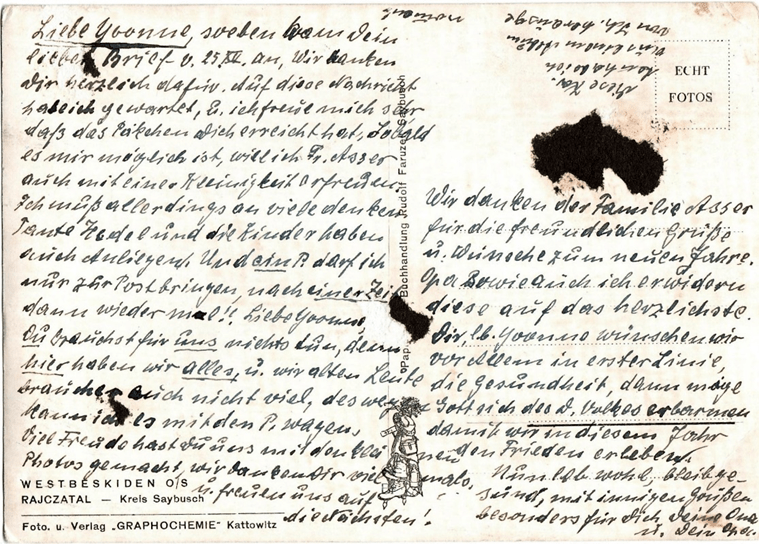 Liebe Yvonne, soeben kam Dein
lieber Brief v. 25.XII. an. Wir danken
Dir herzlich dafür. Auf diese Nachricht
habe ich gewartet, u. ich freue mich sehr
daß das Päkchen Dich erreicht hat. Sobald
es mir möglich ist, will ich Fr. Asser
auch mit einer Kleinigkeit erfreuen.
Ich muß allerdings an viele denken
Tante Hedel und die Kinder haben
auch Anliegen. Und ein P. darf ich
nur zur Post bringen, nach einer Zeit
dann wieder mal!! Liebe Yvonne,
Du brauchst für uns nichts tun, denn
hier haben wir alles, u. wir alten Leute
brauchen auch nicht viel, deswegen
kann ich es mit den P. wagen.
Viel Freude hast Du uns mit den kleinen
Photos gemacht, wir danken Dir vielmals,
u. freuen uns auf
die Nächsten!
WESTBESKIDEN O/S
RAJCZATAL — Kreis Saybusch
Foto. u. Verlag „GRAPHOCHEMIE" Kattowitz
Buchhandlung Rudolf Faruzel Saybusch
ECHT
FOTOS
Wir danken der Familie Asser
für die freundlichen Grüße
u. Wünsche zum neuen Jahre.
Opa sowie auch ich erwidern
diese auf das herzlichste.
Dir, lb. Yvonne wünschen wir
vor Allem in erster Linie,
die Gesundheit, dann möge
Gott sich des d. Volkes erbarmen
damit wir in diesem Jahr
den Frieden erleben.
Nun lb. wohl, bleib ge-
sund, mit innigen Grüßen
besonders für Dich, Deine Oma
u. Dein Opa.